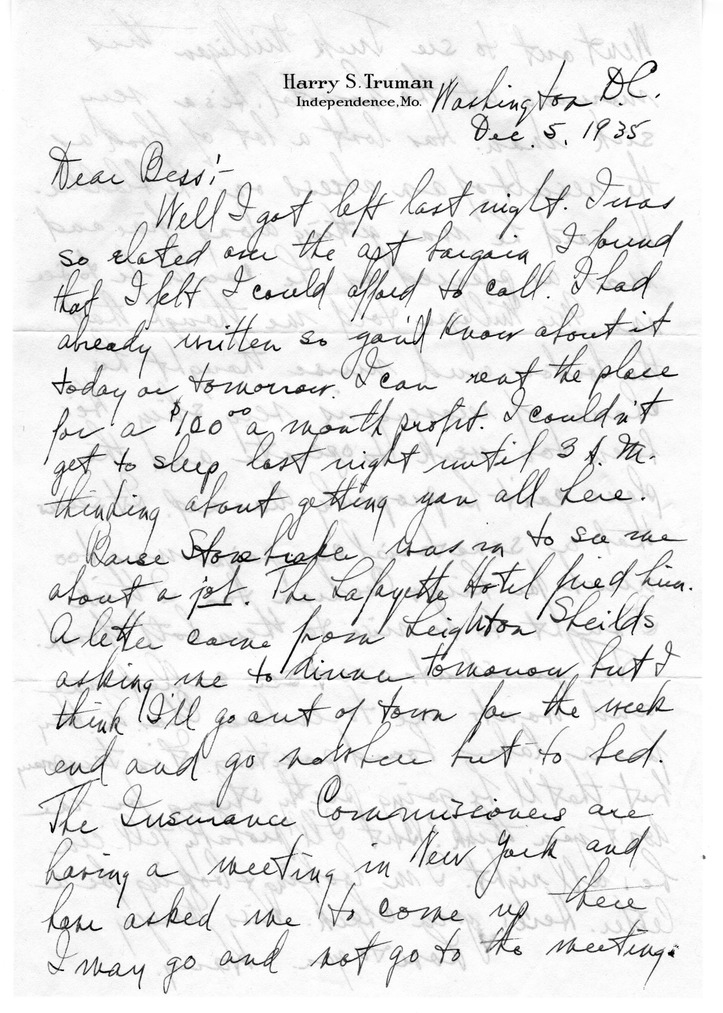 Harry S. Truman
Independence, Mo.
Washington D.C.
Dec. 5, 1935
Dear Bess:-
Well I got left last night. I was
so elated over the apt bargain I found
that I felt I could afford to call. I had
already written so you'll know about it
today or tomorrow. I can rent the place
for a $100.00 a month profit. I couldn't
get to sleep last night until 3 A.M.
thinking about getting you all here.
was in to see me
about a job. The Lafayette Hotel fired him.
A letter came from Leighton Sheilds
asking me to dinner tomorrow but I
think I'll go out of town for the week
end and go nowhere but to bed.
The Insurance Commissioners are
having a meeting in New York and
have asked me to come up there
I may go and not go to the meeting.